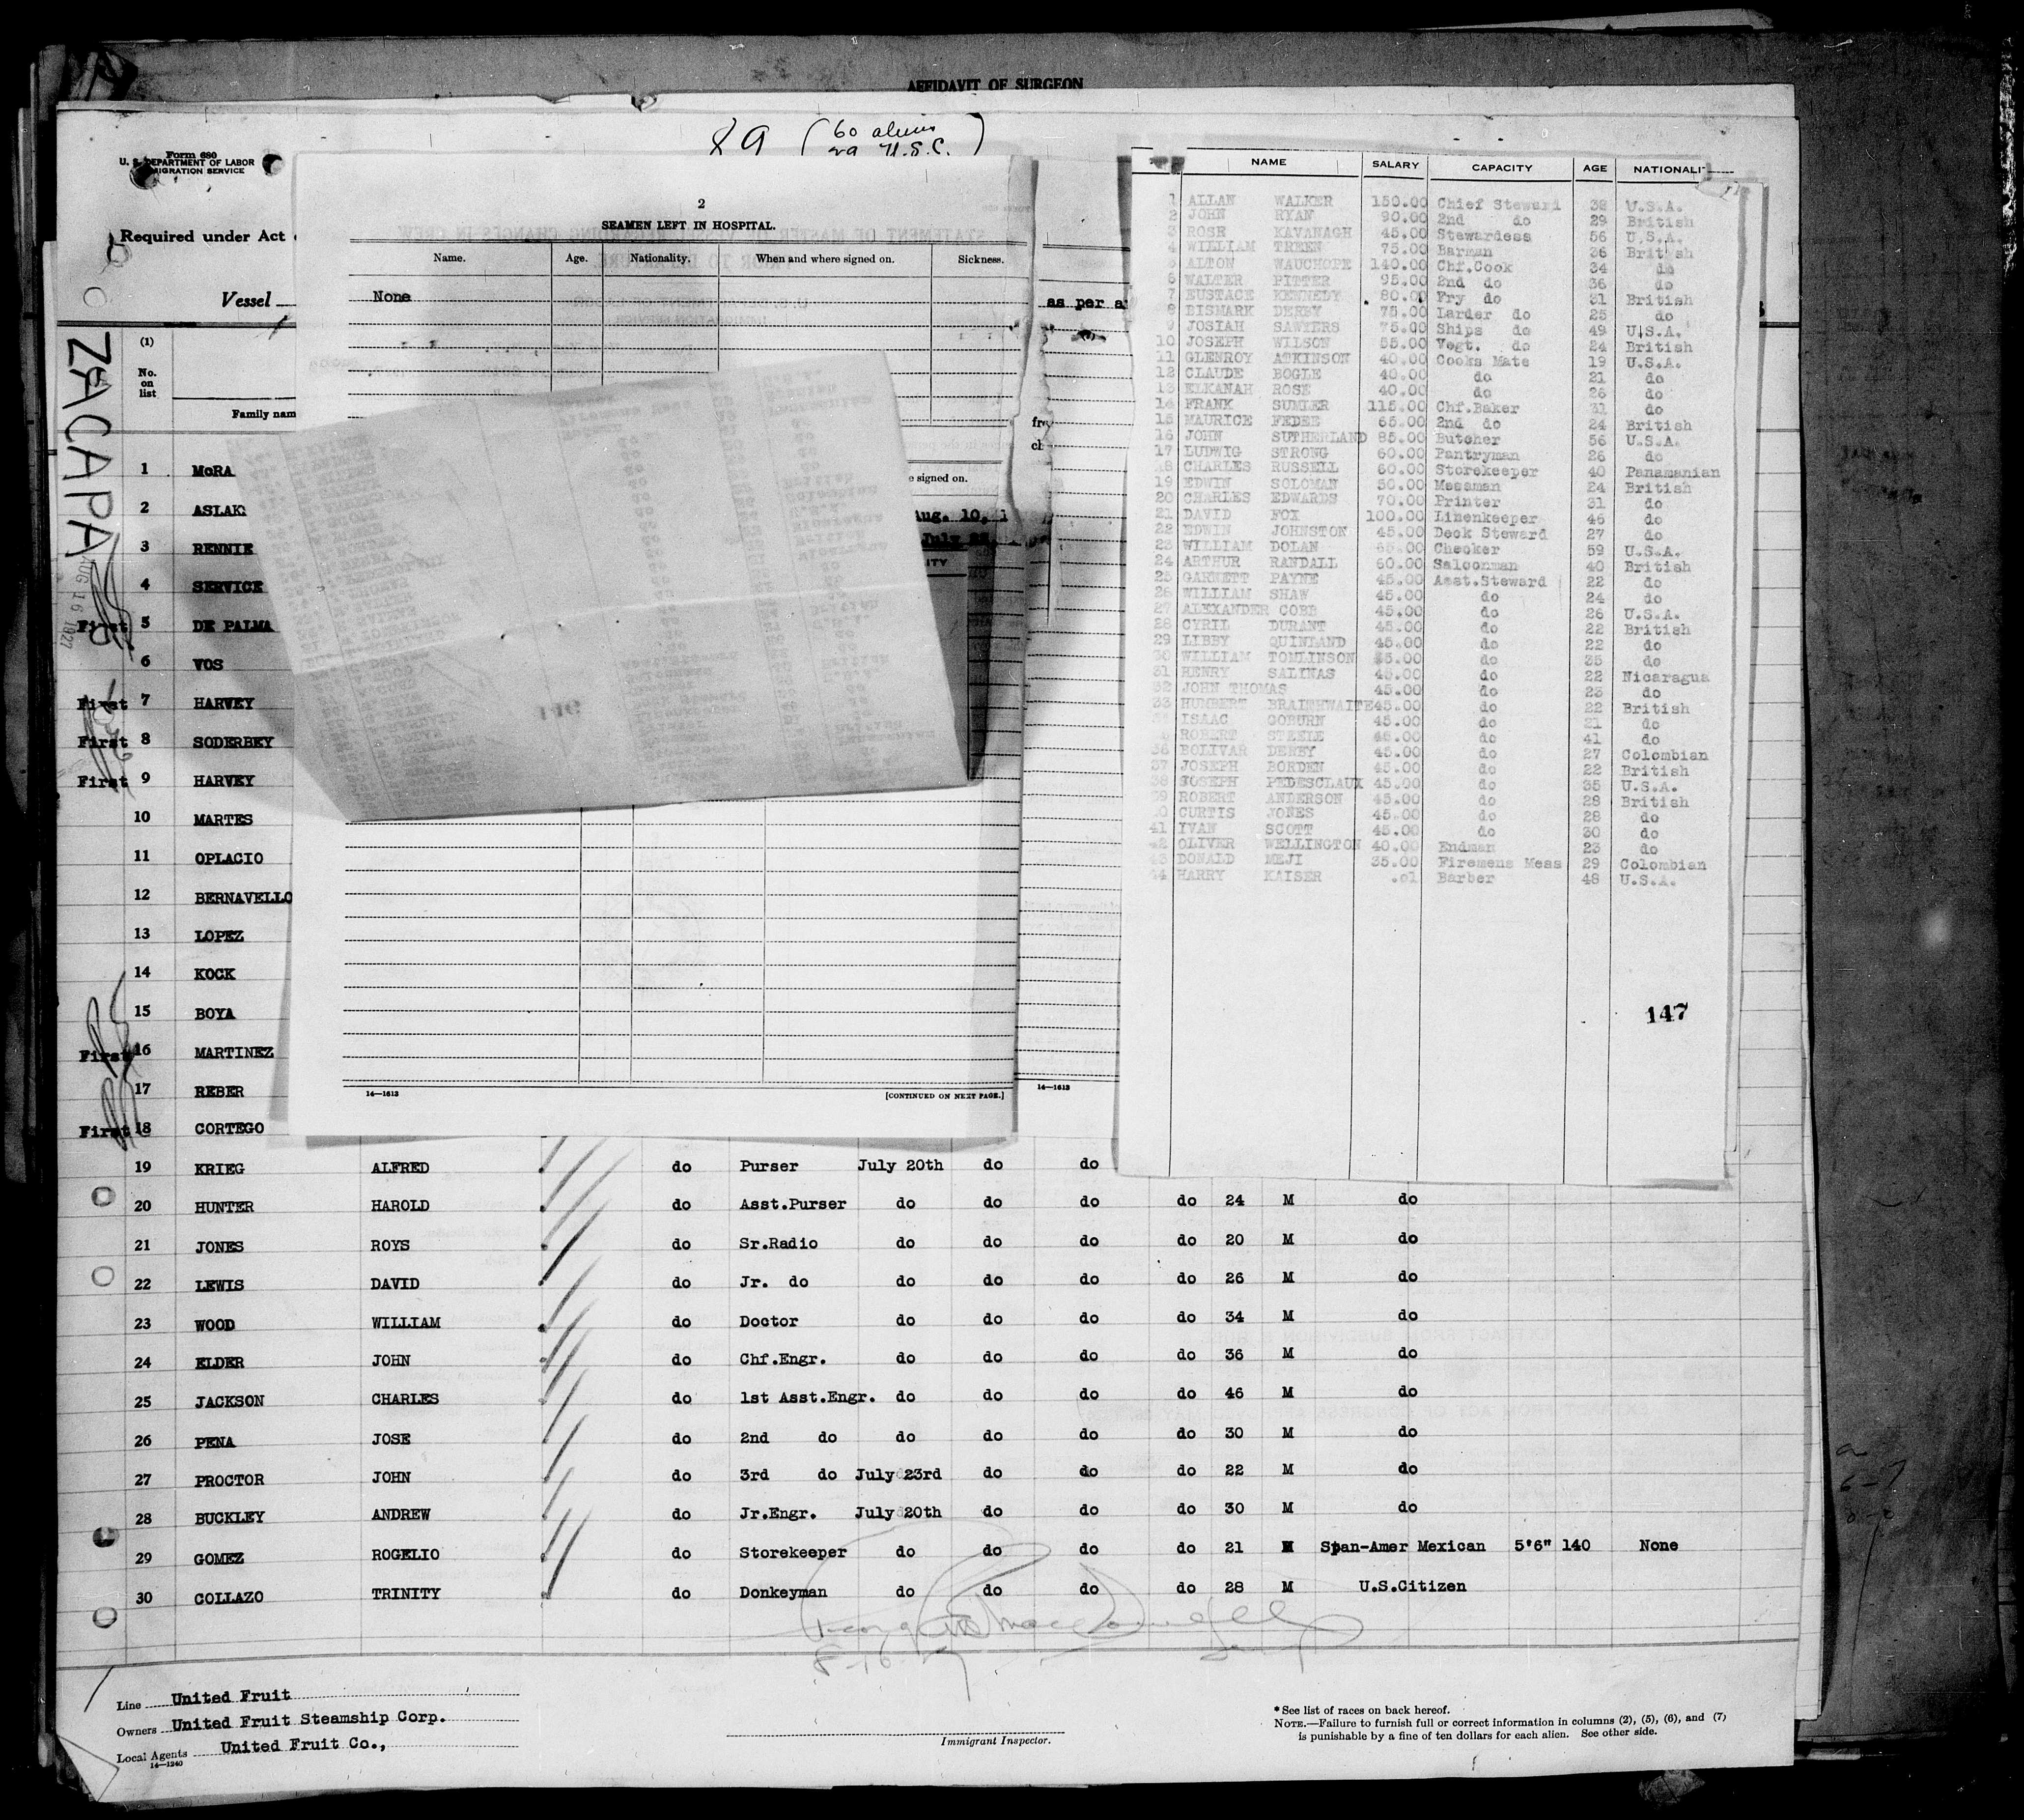 AFFIDAVIT OF SURGEON
89 (60 aliens
29 U.S.C. )
Form 680
U. S. DEPARTMENT OF LABOR
MIGRATION SERVICE
Required under Act
Vessel
as per a
ZACAPA
AUG 16 1927
(1)
No.
on
list
Family nam
1 McRA
2 ASLAK
3 RENNIE
4 SERVICE
First 5 DE PALMA
6 VOS
First 7 HARVEY
First 8 SODERBEY
First 9 HARVEY
10 MARTES
11 OPLACIO
12 BERNAVELLO
13 LOPEZ
14 KOCK
15 BOYA
First 16 MARTINEZ
17 REBER
First 18 CORTEGO
19 KRIEG ALFRED do Purser July 20th do do
20 HUNTER HAROLD do Asst.Purser do do do do 24 M do
21 JONES ROYS do Sr.Radio do do do do 20 M do
22 LEWIS DAVID do Jr. do do do do do 26 M do
23 WOOD WILLIAM do Doctor do do do do 34 M do
24 ELDER JOHN do Chf.Engr. do do do do 36 M do
25 JACKSON CHARLES do 1st Asst.Engr. do do do do 46 M do
26 PENA JOSE do 2nd do do do do do 30 M do
27 PROCTOR JOHN do 3rd do July 23rd do do do 22 M do
28 BUCKLEY ANDREW do Jr.Engr. July 20th do do do 30 M do
29 GOMEZ ROGELIO do Storekeeper do do do do 21 M Span-Amer Mexican 5'6" 140 None
30 COLLAZO TRINITY do Donkeyman do do do do 28 M U.S.Citizen
8-16-27
Line United Fruit
Owners United Fruit Steamship Corp.
Local Agents United Fruit Co.,
14—1240
Immigrant Inspector.
* See list of races on back hereof.
NOTE.—Failure to furnish full or correct information in columns (2), (5), (6), and (7)
is punishable by a fine of ten dollars for each alien. See other side.
2
SEAMEN LEFT IN HOSPITAL.
Name. Age. Nationality. When and where signed on. Sickness.
None
e signed on.
Aug. 10, 1
July 22,
ITY
14—1613
[CONTINUED ON NEXT PAGE.]
14—1613
NAME SALARY CAPACITY AGE NATIONALI
1 ALLAN WALKER 150.00 Chief Steward 38 U.S.A.
2 JOHN RYAN 90.00 2nd do 29 British
3 ROSE KAVANAGH 45.00 Stewardess 56 U.S.A.
4 WILLIAM TREEN 75.00 Barman 36 British
5 ALTON WAUCHOPE 140.00 Chf.Cook 34 do
6 WALTER PITTER 95.00 2nd do 36 do
7 EUSTACE KENNEDY 80.00 Fry do 31 British
8 BISMARK DERBY 75.00 Larder do 25 do
9 JOSIAH SAWYERS 75.00 Ships do 49 U.S.A.
10 JOSEPH WILSON 55.00 Vegt. do 24 British
11 GLENROY ATKINSON 40.00 Cooks Mate 19 U.S.A.
12 CLAUDE BOGLE 40.00 do 21 do
13 ELKANAH ROSE 40.00 do 26 do
14 FRANK SUMLER 115.00 Chf.Baker 31 do
15 MAURICE FEDEE 65.00 2nd do 24 British
16 JOHN SUTHERLAND 85.00 Butcher 56 U.S.A.
17 LUDWIG STRONG 60.00 Pantryman 26 do
18 CHARLES RUSSELL 60.00 Storekeeper 40 Panamanian
19 EDWIN SOLOMAN 50.00 Messman 24 British
20 CHARLES EDWARDS 70.00 Printer 31 do
21 DAVID FOX 100.00 Linenkeeper 46 do
22 EDWIN JOHNSTON 45.00 Deck Steward 27 do
23 WILLIAM DOLAN 65.00 Checker 59 U.S.A.
24 ARTHUR RANDALL 60.00 Saloonman 40 British
25 GARNETT PAYNE 45.00 Asst.Steward 22 do
26 WILLIAM SHAW 45.00 do 24 do
27 ALEXANDER COBB 45.00 do 26 U.S.A.
28 CYRIL DURANT 45.00 do 22 British
29 LIBBY QUINLAND 45.00 do 22 do
30 WILLIAM TOMLINSON 45.00 do 35 do
31 HENRY SALINAS 45.00 do 22 Nicaragua
32 JOHN THOMAS 45.00 do 23 do
33 HUMBERT BRAITHWAITE 45.00 do 22 British
ISAAC COBURN 45.00 do 21 do
ROBERT STEELE 45.00 do 41 do
36 BOLIVAR DERBY 45.00 do 27 Colombian
37 JOSEPH BORDEN 45.00 do 22 British
38 JOSEPH PEDESCLAUX 45.00 do 35 U.S.A.
39 ROBERT ANDERSON 45.00 do 28 British
40 CURTIS JONES 45.00 do 28 do
41 IVAN SCOTT 45.00 do 30 do
42 OLIVER WELLINGTON 40.00 Endman 23 do
43 DONALD MEJI 35.00 Firemens Mess 29 Colombian
44 HARRY KAISER .01 Barber 48 U.S.A.
147